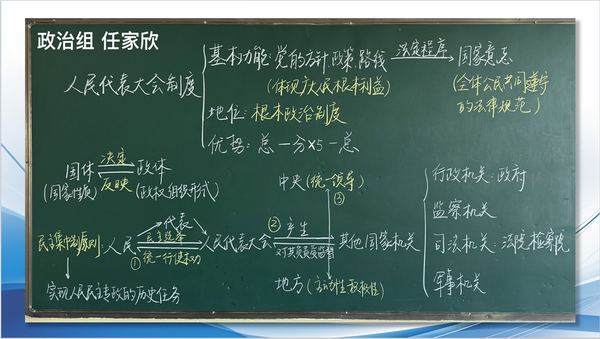 政治组 任家欣
人民代表大会制度
基本功能：党的方针政策、路线 法定程序 国家意志
(体现广大人民根本利益)
(全体公民共同遵守
的法律规范)
地位：根本政治制度
优势：总一分×5一总
国体 决定 政体
反映
(国家性质) (政权组织形式)
民主集中制原则：人民 代表 人民代表大会 ② 产生 其他国家机关
民主选举
① 统一行使权力
对其负责受其监督
实现人民民主专政的历史任务
中央(统一领导)
③
地方(主动性积极性)
行政机关：政府
监察机关
司法机关：法院检察院
军事机关